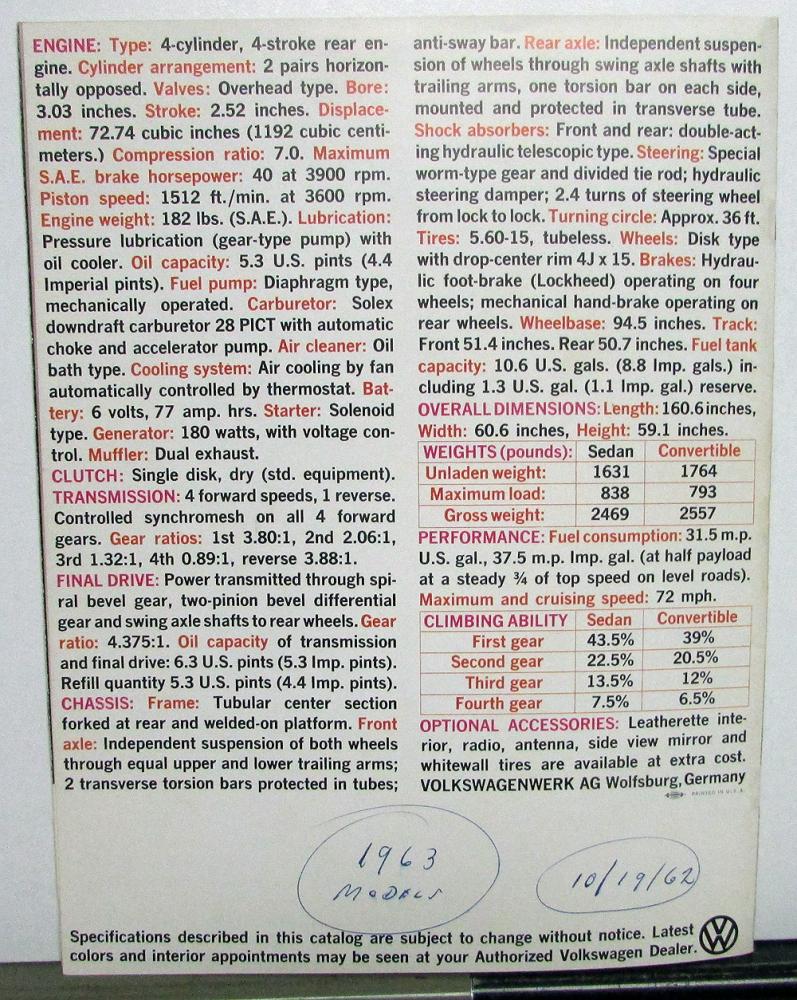 ENGINE: Type: 4-cylinder, 4-stroke rear en-
gine. Cylinder arrangement: 2 pairs horizon-
tally opposed. Valves: Overhead type. Bore:
3.03 inches. Stroke: 2.52 inches. Displace-
ment: 72.74 cubic inches (1192 cubic centi-
meters.) Compression ratio: 7.0. Maximum
S.A.E. brake horsepower: 40 at 3900 rpm.
Piston speed: 1512 ft./min. at 3600 rpm.
Engine weight: 182 lbs. (S.A.E.). Lubrication:
Pressure lubrication (gear-type pump) with
oil cooler. Oil capacity: 5.3 U.S. pints (4.4
Imperial pints). Fuel pump: Diaphragm type,
mechanically operated. Carburetor: Solex
downdraft carburetor 28 PICT with automatic
choke and accelerator pump. Air cleaner: Oil
bath type. Cooling system: Air cooling by fan
automatically controlled by thermostat. Bat-
tery: 6 volts, 77 amp. hrs. Starter: Solenoid
type. Generator: 180 watts, with voltage con-
trol. Muffler: Dual exhaust.
CLUTCH: Single disk, dry (std. equipment).
TRANSMISSION: 4 forward speeds, 1 reverse.
Controlled synchromesh on all 4 forward
gears. Gear ratios: 1st 3.80:1, 2nd 2.06:1,
3rd 1.32:1, 4th 0.89:1, reverse 3.88:1.
FINAL DRIVE: Power transmitted through spi-
ral bevel gear, two-pinion bevel differential
gear and swing axle shafts to rear wheels. Gear
ratio: 4.375:1. Oil capacity of transmission
and final drive: 6.3 U.S. pints (5.3 Imp. pints).
Refill quantity 5.3 U.S. pints (4.4 Imp. pints).
CHASSIS: Frame: Tubular center section
forked at rear and welded-on platform. Front
axle: Independent suspension of both wheels
through equal upper and lower trailing arms;
2 transverse torsion bars protected in tubes;
anti-sway bar. Rear axle: Independent suspen-
sion of wheels through swing axle shafts with
trailing arms, one torsion bar on each side,
mounted and protected in transverse tube.
Shock absorbers: Front and rear: double-act-
ing hydraulic telescopic type. Steering: Special
worm-type gear and divided tie rod; hydraulic
steering damper; 2.4 turns of steering wheel
from lock to lock. Turning circle: Approx. 36 ft.
Tires: 5.60-15, tubeless. Wheels: Disk type
with drop-center rim 4J x 15. Brakes: Hydrau-
lic foot-brake (Lockheed) operating on four
wheels; mechanical hand-brake operating on
rear wheels. Wheelbase: 94.5 inches. Track:
Front 51.4 inches. Rear 50.7 inches. Fuel tank
capacity: 10.6 U.S. gals. (8.8 Imp. gals.) in-
cluding 1.3 U.S. gal. (1.1 Imp. gal.) reserve.
OVERALL DIMENSIONS: Length: 160.6 inches,
Width: 60.6 inches, Height: 59.1 inches.
WEIGHTS (pounds): Sedan Convertible
Unladen weight: 1631 1764
Maximum load: 838 793
Gross weight: 2469 2557
PERFORMANCE: Fuel consumption: 31.5 m.p.
U.S. gal., 37.5 m.p. Imp. gal. (at half payload
at a steady ¾ of top speed on level roads).
Maximum and cruising speed: 72 mph.
CLIMBING ABILITY Sedan Convertible
First gear 43.5% 39%
Second gear 22.5% 20.5%
Third gear 13.5% 12%
Fourth gear 7.5% 6.5%
OPTIONAL ACCESSORIES: Leatherette inte-
rior, radio, antenna, side view mirror and
whitewall tires are available at extra cost.
VOLKSWAGENWERK AG Wolfsburg, Germany
PRINTED IN U.S.A.
1963
MODELS
10/19/62
Specifications described in this catalog are subject to change without notice. Latest
colors and interior appointments may be seen at your Authorized Volkswagen Dealer.
VW